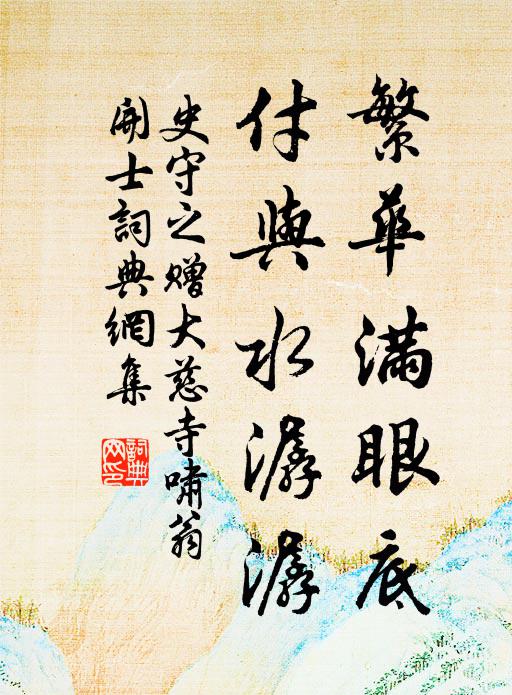 繁華滿眼底
付與水潺潺
史守之贈大慈寺嘯翁
開士詞典網集
詞典網印